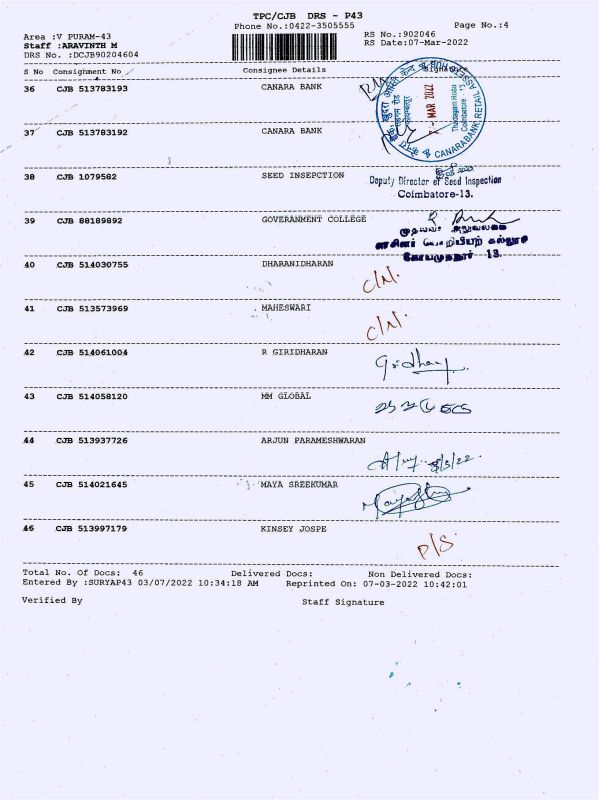 TPC/CJB DRS - P43
Phone No.:0422-3505555
Page No.:4
Area :V PURAM-43
RS No.:902046
Staff :ARAVINTH M
RS Date:07-Mar-2022
DRS No. :DCJB90204604
S No Consignment No Consignee Details Signature
36 CJB 513783193 CANARA BANK
MAR 2022
Coimbatore - 13
CANARA BANK, RETAIL ASSETS HUB
37 CJB 513783192 CANARA BANK
38 CJB 1079582 SEED INSEPCTION
Deputy Director of Seed Inspection
Coimbatore-13.
39 CJB 88189892 GOVERANMENT COLLEGE
முதல்வர் அலுவலகம்
அரசினர் பொறியியற் கல்லூரி
கோயமுத்தூர் 13.
40 CJB 514030755 DHARANIDHARAN
C/N.
41 CJB 513573969 MAHESWARI
C/N.
42 CJB 514061004 R GIRIDHARAN
43 CJB 514058120 MM GLOBAL
44 CJB 513937726 ARJUN PARAMESHWARAN
8/3/22
45 CJB 514021645 MAYA SREEKUMAR
46 CJB 513997179 KINSEY JOSPE
P/S.
Total No. Of Docs: 46 Delivered Docs: Non Delivered Docs:
Entered By :SURYAP43 03/07/2022 10:34:18 AM Reprinted On: 07-03-2022 10:42:01
Verified By Staff Signature